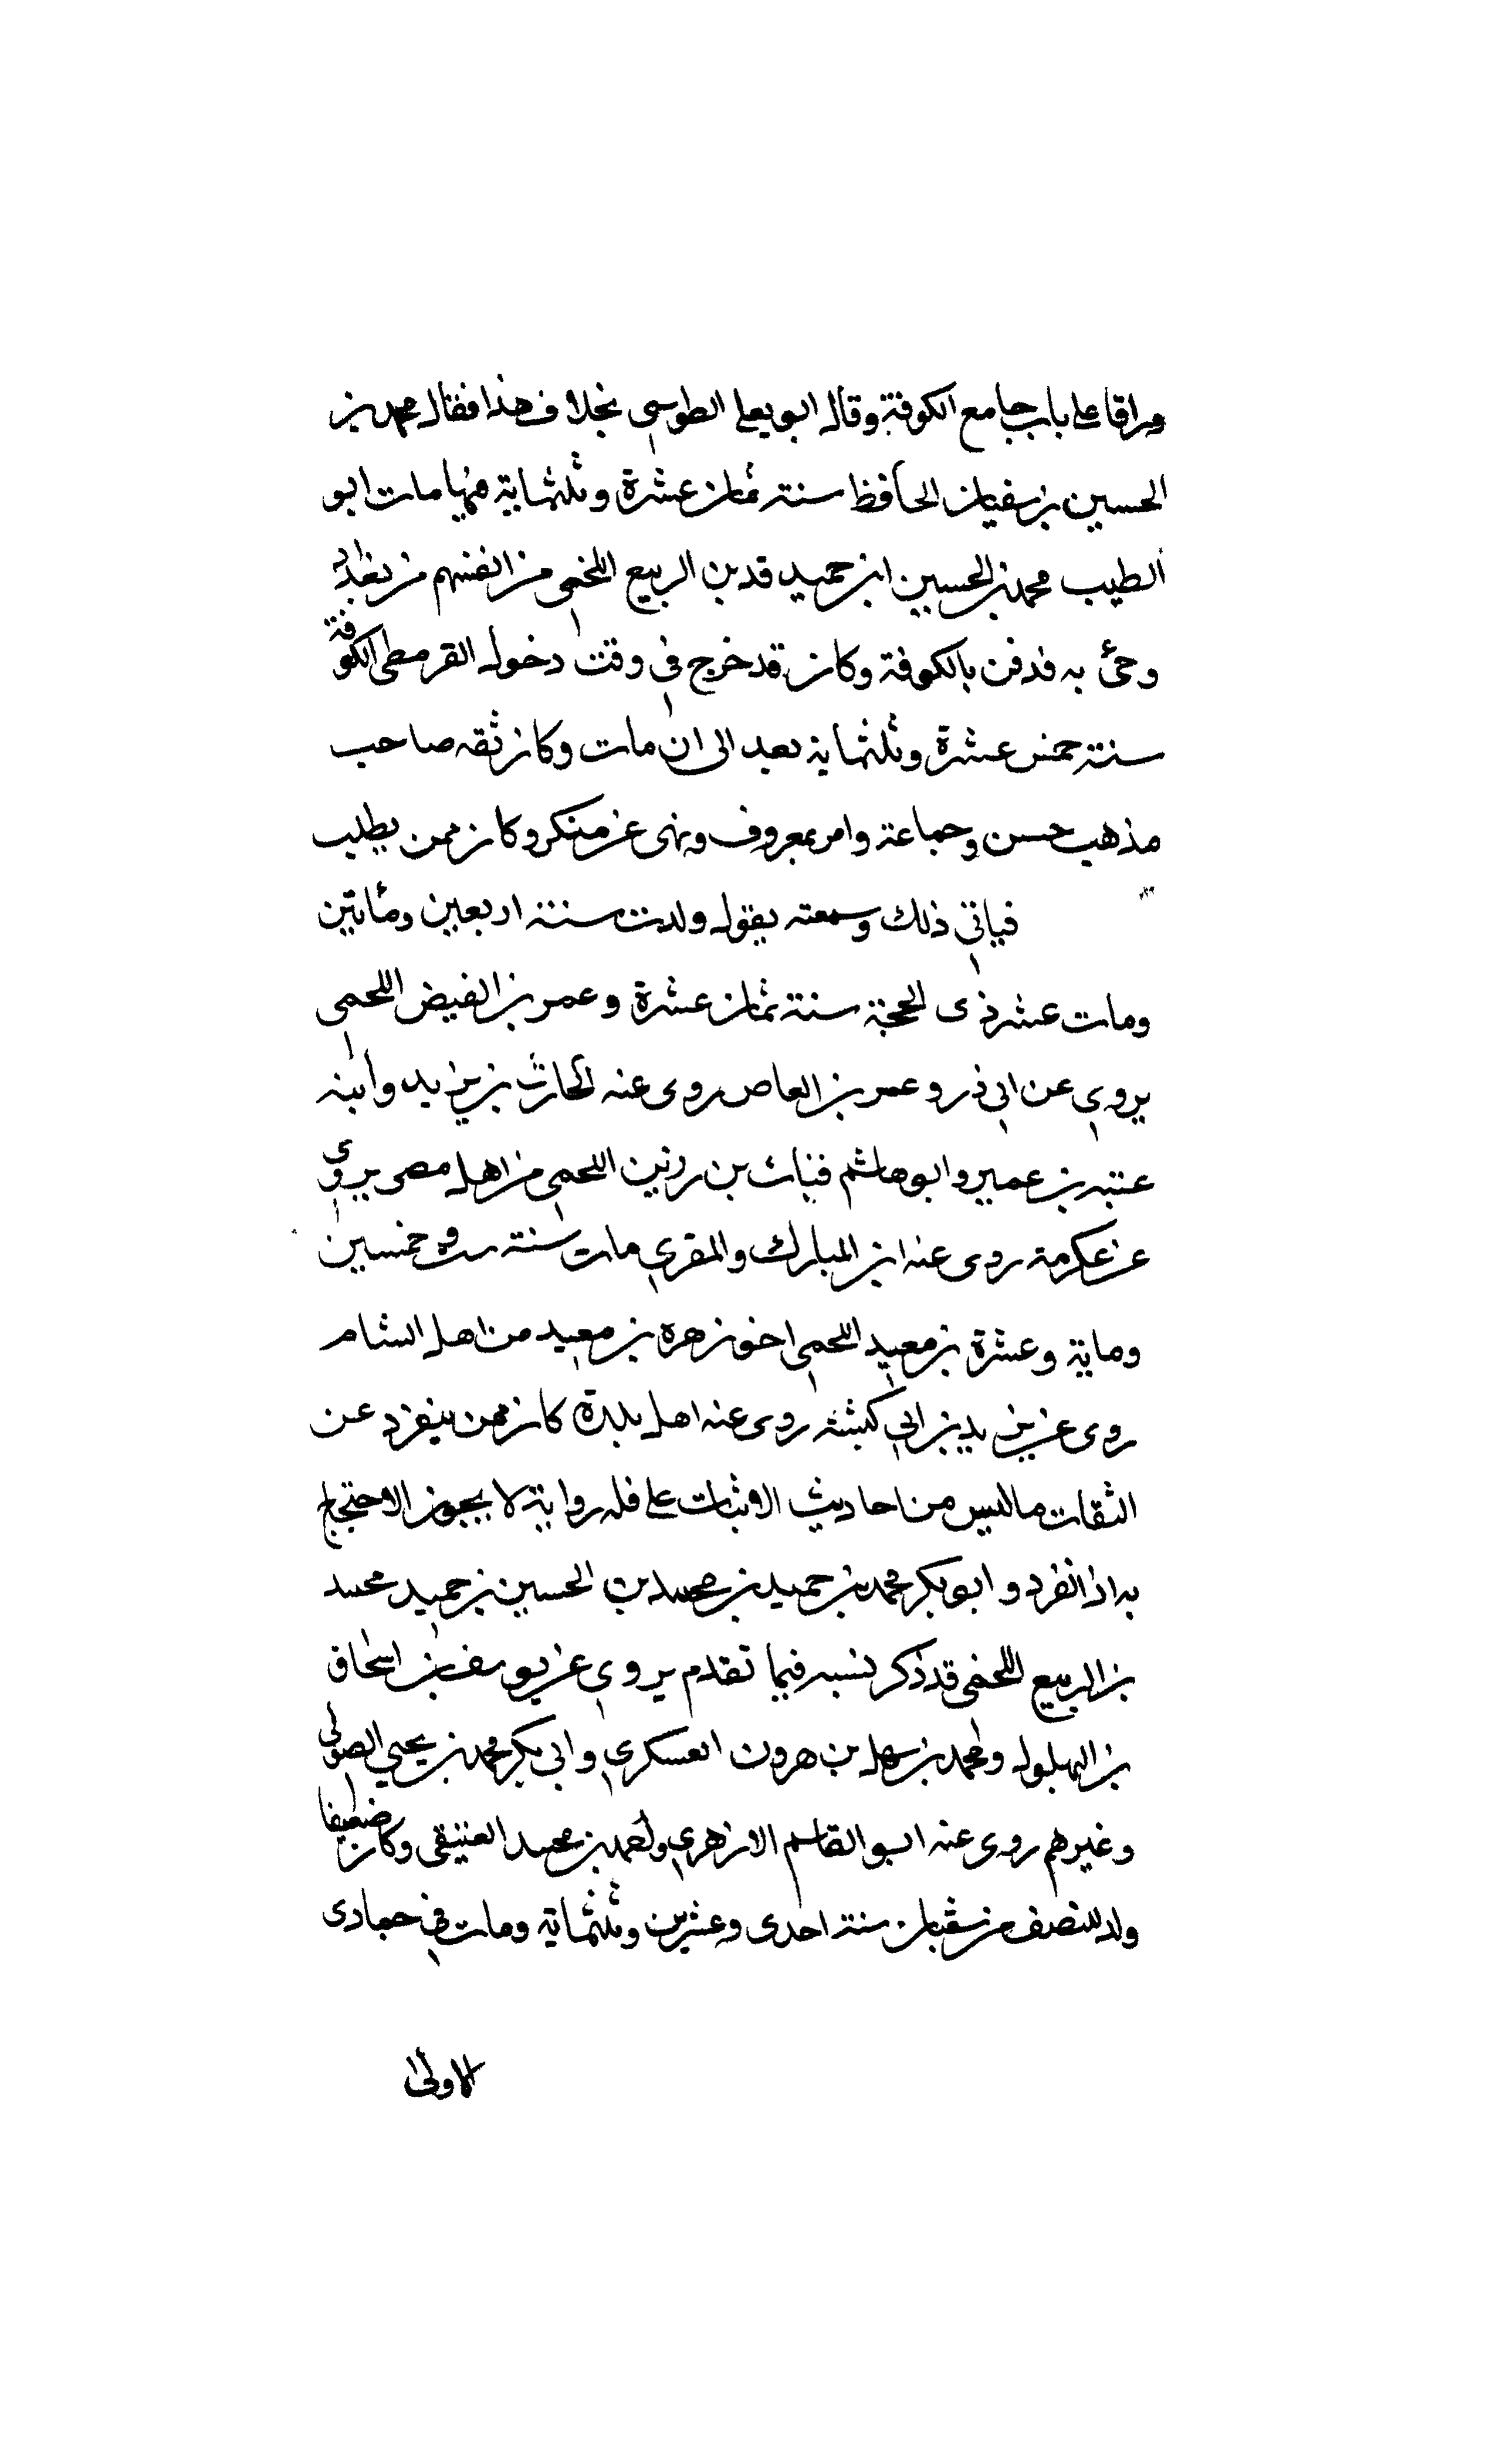 وراقا على باب جامع الكوفة وقال ابو يعلى الطوسى بخلاف هذا فقال محمد بن
الحسين بن سفيان الحافظ سنة ثمان عشرة وثلثماية فيها مات ابو
الطيب محمد بن الحسين ابن حميد قد بن الربيع اللخمى من انفسهم من بغداد
وجئ به فدفن بالكوفة وكان قد خرج فى وقت دخول القرمطى الكوفة
سنة خمس عشرة وثلثماية بعد الى ان مات وكان ثقه صاحب
مذهب حسن وجماعة وامر بمعروف ونهى عن منكر وكان ممن يطلب
ذلك وسمعته يقول ولدت سنة اربعين ومأتين
ومات عشر ذى الحجة سنة ثمان عشرة وعمر بن الفيض اللحمى
يروى عن ابى ذر وعمر بن العاص روى عنه الحارث بن يزيد وابنه
عتبه بن عمير وابو هاشم قباث بن رزين اللحمى من اهل مصر يروى
عن عكرمة روى عنه ابن المبارك والمقرى مات سنة ست وخمسين
وماية وعشرة بن معبد اللحمى اخو زهرة بن معبد من اهل الشام
روى عن يزيد بن ابى كبشة روى عنه اهل بلده كان ممن ينفرد عن
الثقات ما ليس من احاديث الاثبات على قله رواية لا يجوز الاحتجاج
به اذا انفرد وابو بكر محمد بن حميد بن محمد بن الحسين بن حميد محمد
بن الربيع اللخمى قد ذكر نسبه فيما تقدم يروى عن يوسف بن اسحاق
بن البهلول ومحمد بن سهل بن هرون العسكرى وابى بكر محمد بن يحيى الصولى
وغيرهم روى عنه ابو القاسم الازهرى واحمد بن محمد العتيقى وكان ضعيفا
ولد للنصف من شعبان سنة احدى وعشرين وثلثماية ومات فى جمادى
الاولى